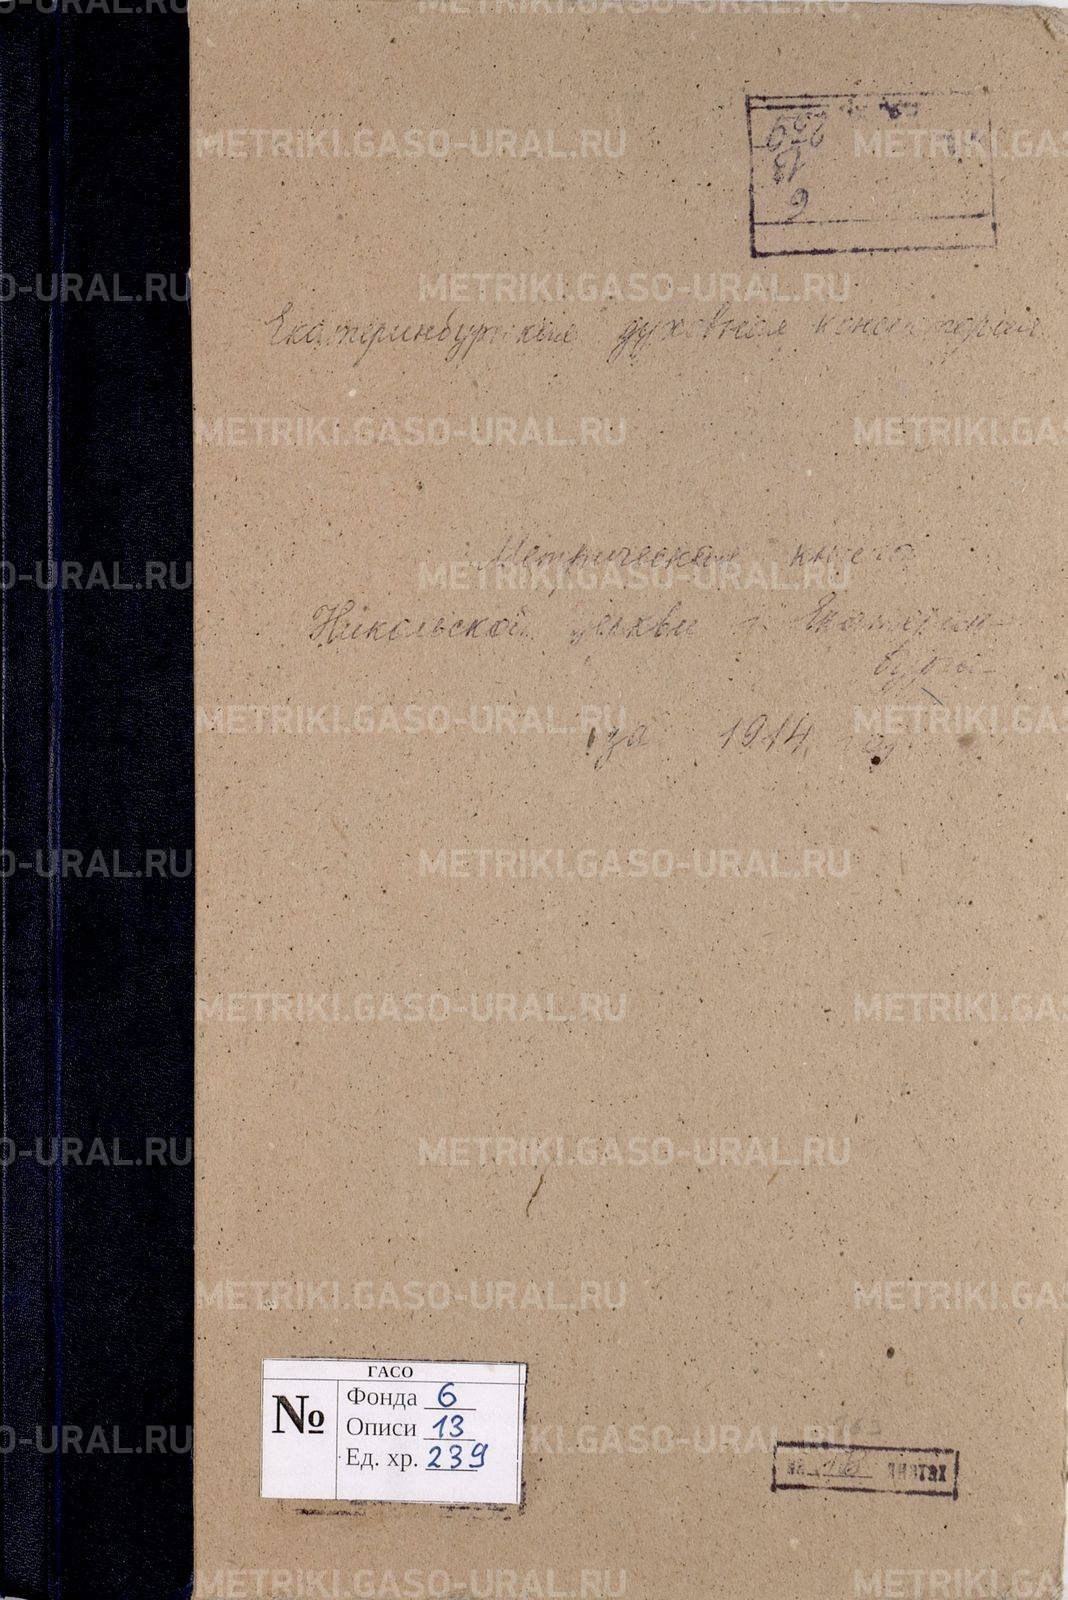 239
13
6
Екатеринбургская духовная консистория
Метрическая книга
Никольской церкви г. Екатерин-
бурга
за 1914 год
ГАСО
№
Фонда 6
Описи 13
Ед. хр. 239
на листах
METRIKI.GASO-URAL.RU